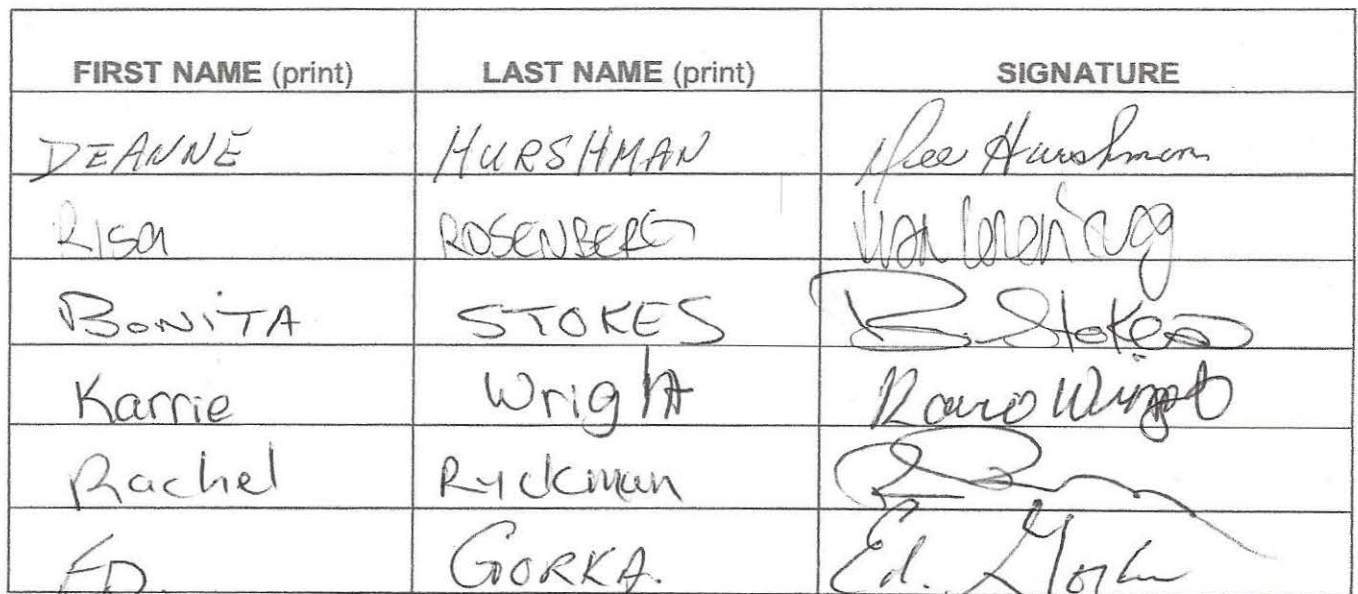 FIRST NAME (print) LAST NAME (print) SIGNATURE
DEANNE HURSHMAN Dee Hurshman
Risa ROSENBERG
BONiTA STOKES B. Stokes
Karrie Wright Wright
Rachel Ryckman
ED. GORKA. Ed. Gorka